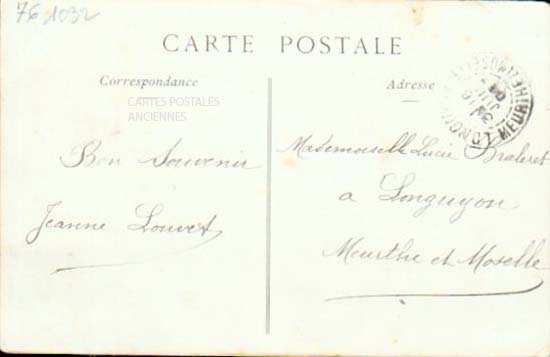 76 1032
CARTE POSTALE
Correspondance
Adresse
CARTES POSTALES
ANCIENNES
Bon Souvenir
Jeanne Louvet
Mademoiselle Lucie
a Longuyon
Meurthe et Moselle